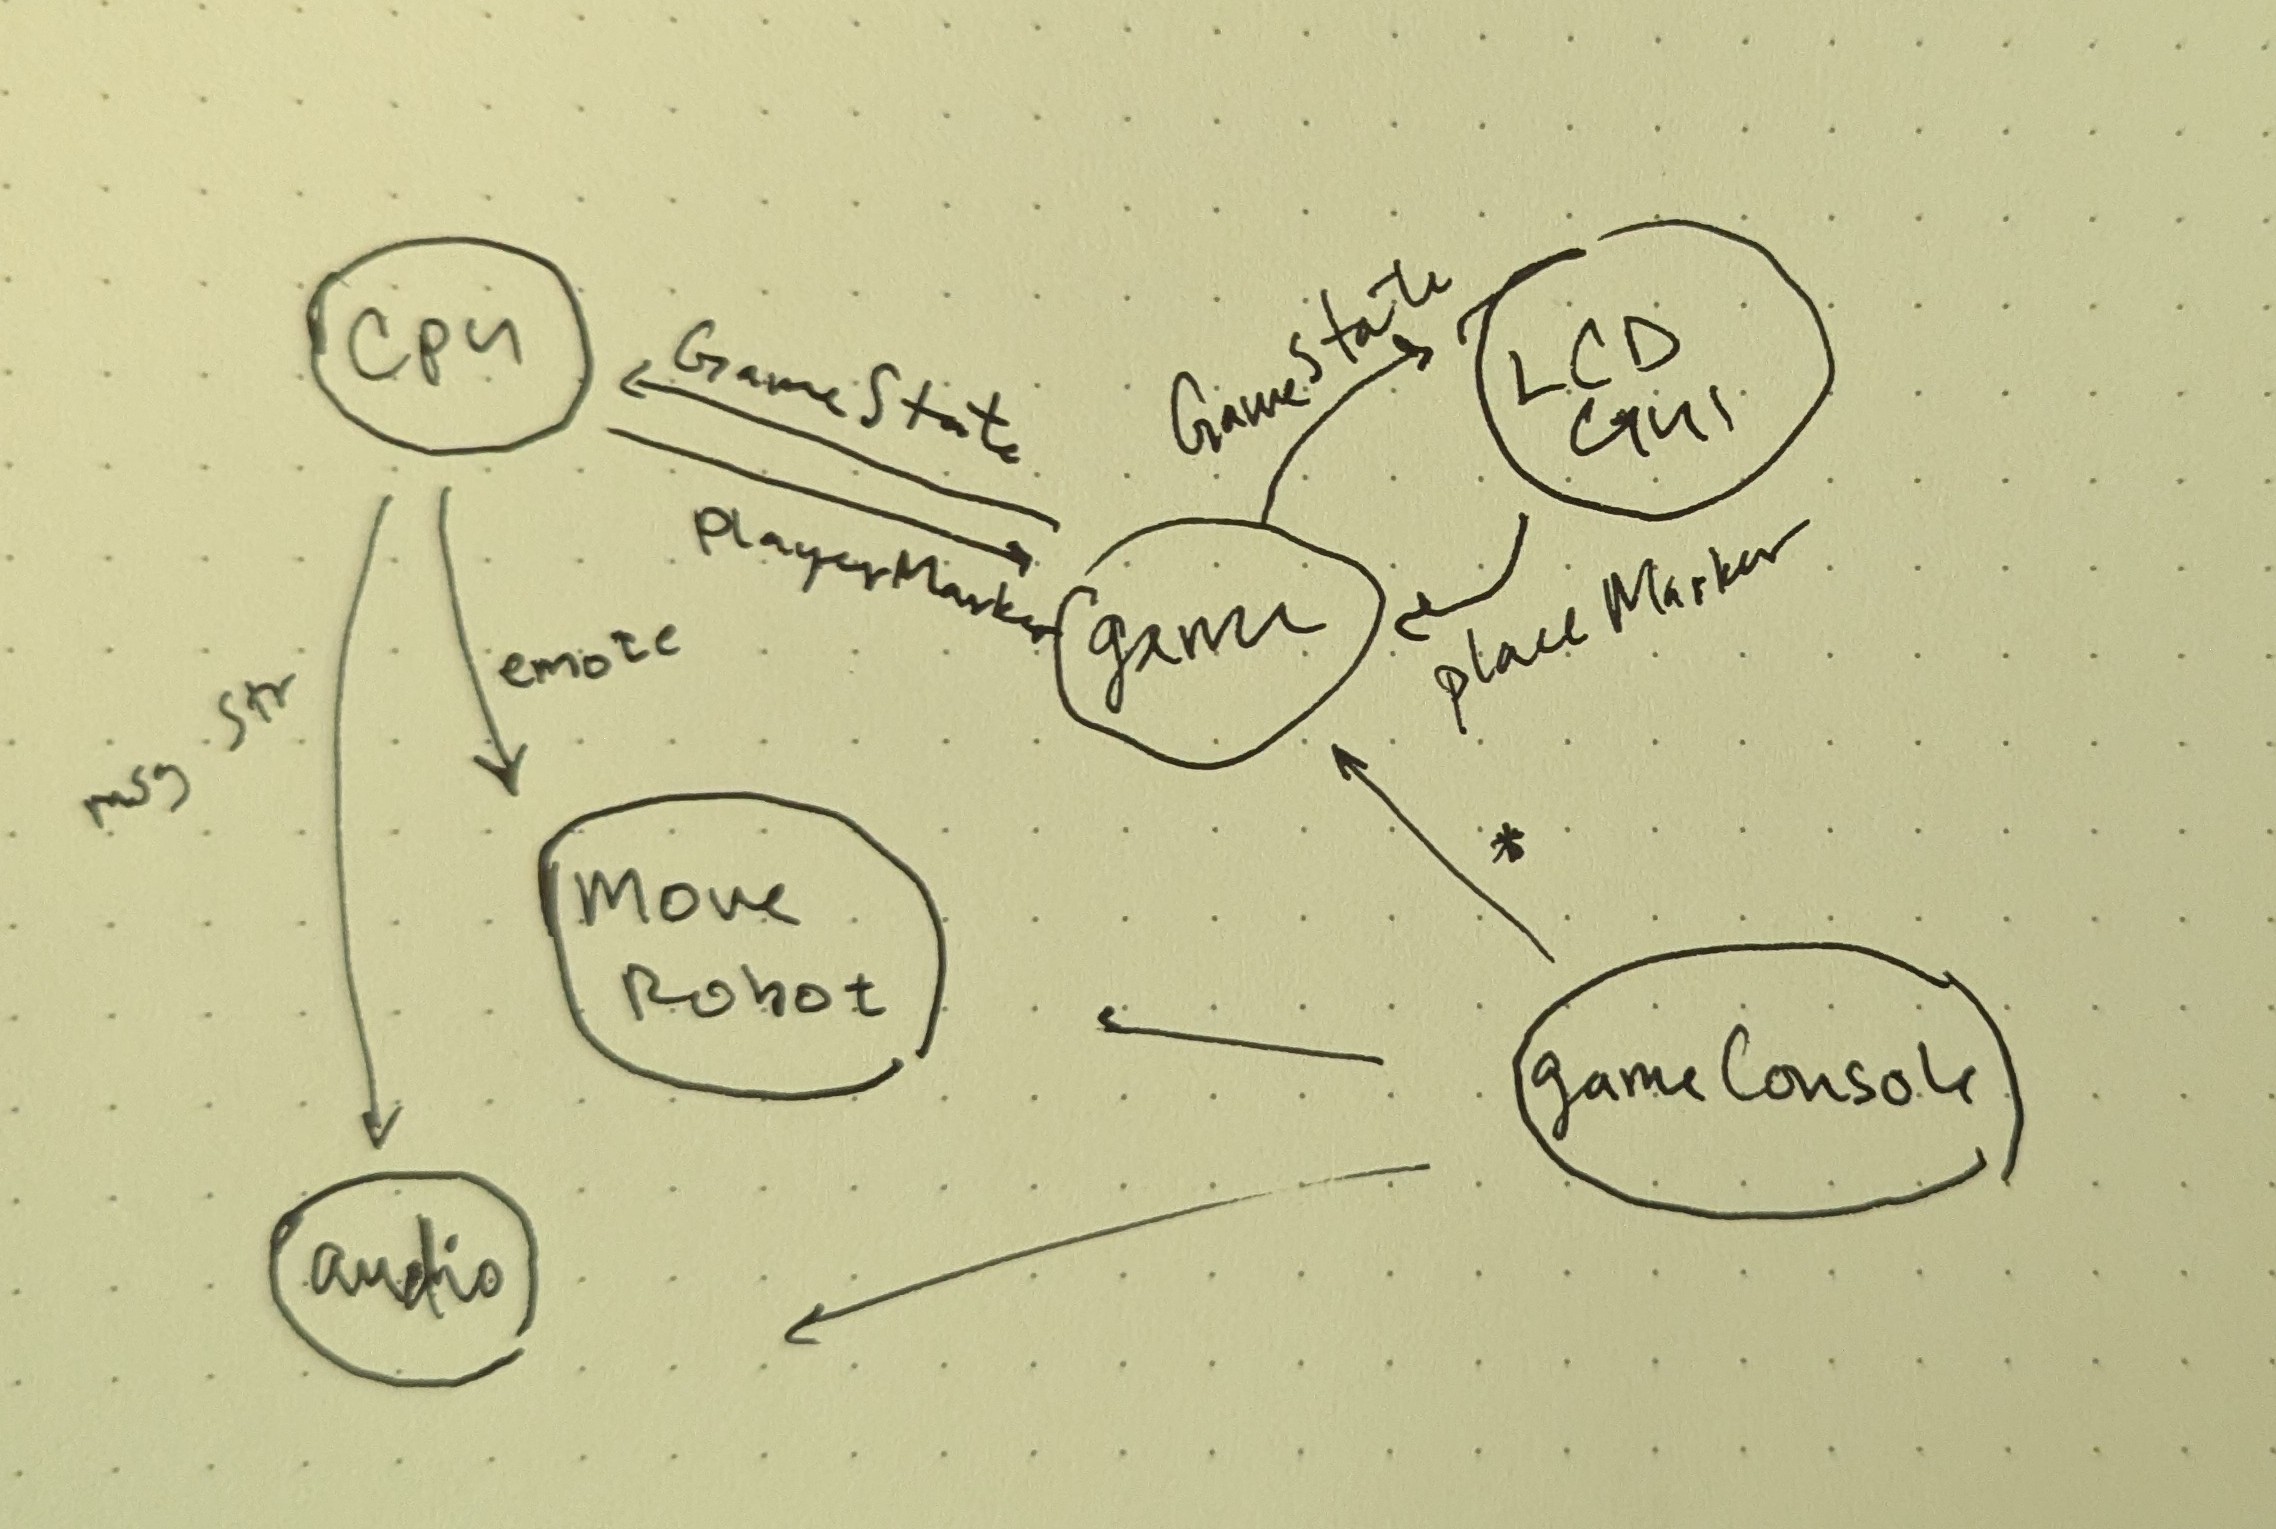 Cpu
GameState
PlayerMarker
GameState
LCD
GUI
game
placeMarker
msg str
emote
Move
Robot
*
gameConsole
audio